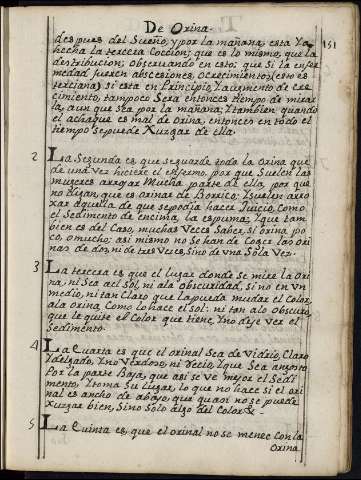 De Orina.
151
despues del Sueño, y por la mañana, esta Ya
hecha la tercera Coccion; que es lo mismo, que la
destribucion; observando en esto; que Si la enfer
medad, fueren abscesiones, o crecimientos, (esto es
terciana) si esta en Principio, Y augmento de cre
cimiento, tampoco Sera entonces tiempo de mirar
la, aun que Sea por la mañana; Y tambien quando
el achaque es mal de Orina, entonces en todo el
tiempo se puede Xuzgar de ella.
2 La Segunda es que se guarde toda la Orina que
de una Vez hiciere el enfermo, por que Suelen las
mugeres arrojar Mucha parte de ella, por que
no digan, que es Orinar de borrico; Y suelen arro
xar aquella de que se podia hacer Juicio, Como
el Sedimento de encima, la espuma; Y que tam
bien es del Caso, muchas Veces Saber, si orina po
co, o mucho; asi mismo no Se han de Coger las Ori
nas de dos, ni de tres Veces, Sino de una Sola Vez.
3 La tercera es que el lugar donde Se mire la Ori
na, ni Sea al Sol, ni ala obscuridad, si no en Vn
medio, ni tan Claro que la pueda mudar el Color,
ala Orina, Como lo hace el sol: ni tan alo Obscuro,
que le quite el Color que tiene, Y no deje ver el
Sedimento.
4 La Quarta es que el orinal Sea de Vidrio, Claro
Y delgado, Y no Verdoso, ni Recio, Y que Sea angosto
Por la parte Baja, que asi se Ve mejor el Sedi
mento, Y toma Su lugar, lo que no hace si el ori
nal es ancho de abajo, que quasi no Se puede
Xuzgar bien, Sino Solo algo del Color &.
5 La Quinta es, que el orinal no se menee Con la
Orina